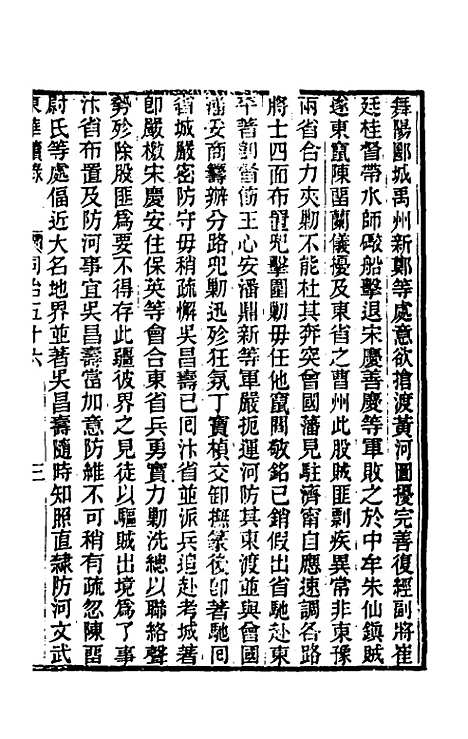 舞陽郾城禹州新鄭等處意欲搶渡黃河圖擾完善復經副將崔
廷桂督帶水師礮船擊退宋慶善慶等軍敗之於中牟朱仙鎭賊
遂東竄陳畱蘭儀擾及東省之曹州此股賊匪剽疾異常非東豫
兩省合力夾勦不能杜其奔突曾國藩見駐濟甯自應速調各路
將士四面布置兜擊圍勦毋任他竄閻敬銘已銷假出省馳赴東
平著剴督飭王心安潘鼎新等軍嚴扼運河防其東渡並與曾國
藩妥商籌辦分路兜勦迅殄狂氛丁寶楨交卸撫篆後卽著馳囘
省城嚴密防守毋稍疏懈吳昌壽已囘汴省並派兵追赴考城著
卽嚴檄宋慶安住保英等會合東省兵勇實力勦洗總以聯絡聲
勢殄除股匪爲要不得存此疆彼界之見徒以驅賊出境爲了事
汴省布置及防河事宜吳昌壽當加意防維不可稍有疏忽陳畱
尉氏等處偪近大名地界並著吳昌壽隨時知照直隸防河文武
東華續錄
同治五十六
三